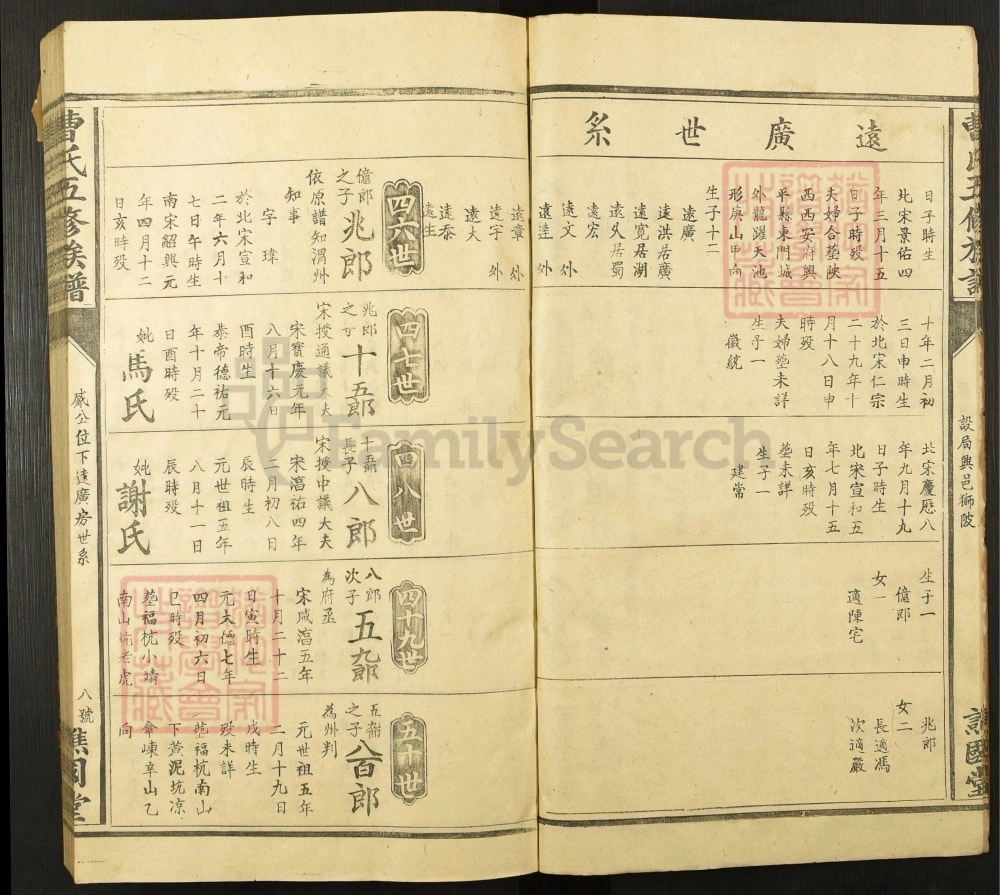 遠廣世系
日子時生
北宋景佑四
年三月十五
日子時殁
夫婦合塟陝
西西安府興
平縣東門城
外龍躍天池
形庚山甲向
生子十二
遠廣
遠洪居廣
遠寬居湖
遠久居蜀
遠宏
遠文 外
遠達 外
遠章 外
遠宇 外
遠大
遠泰
遠生
十年二月初
三日申時生
於北宋仁宗
二十九年十
月十八日申
時殁
夫婦塟未詳
生子一
徽統
北宋慶厯八
年九月十九
日子時生
北宋宣和五
年七月十五
日亥時殁
塟未詳
生子一
建常
生子一
億郎
女一
適陳宅
兆郎
女二
長適馮
次適嚴
設局興邑獅陂
譙國堂
四六世
億郎
之子
兆郎
依原譜知渭州
知事
字瑋
於北宋宣和
二年六月十
七日午時生
南宋紹興元
年四月十二
日亥時殁
四七世
兆郎
之子
十五郎
宋授通議大夫
宋寶慶元年
八月十六日
酉時生
恭帝德祐元
年十月二十
日酉時殁
妣
馬氏
四八世
長子
八郎
宋授中議大夫
宋淳祐四年
二月初八日
辰時生
元世祖五年
八月十一日
辰時殁
妣
謝氏
四十九世
八郎
次子
五九郎
為府丞
宋咸淳五年
十月二十二
日寅時生
元大德七年
四月初六日
巳時殁
塟福杭小靖
南山坑老虎
五十世
之子
八百郎
為州判
元世祖五年
二月十九日
戌時生
殁未詳
塟福杭南山
下黃泥坑凉
傘崠辛山乙
向
曹氏五修族譜
咸公位下遠廣房世系
八號
譙國堂
FamilySearch